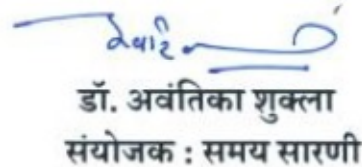 डॉ. अवंतिका शुक्ला
संयोजक : समय सारणी